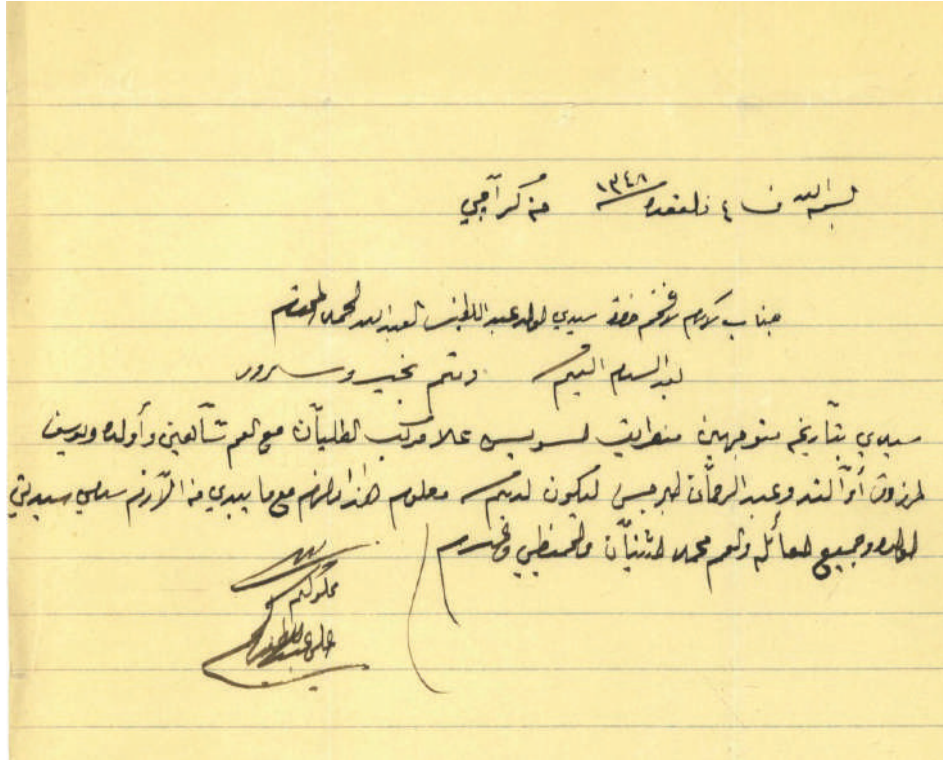 بسم الله في ٤ ذلقعده ١٣٤٨ من كرآچي
جناب الاكرم الافخم حضرة سيدي الوالد عبد اللطيف العبد الله الحمد المحترم
بعد السلام عليكم دمتم بخير وسرور
سيدي بتآريخه متوجهين منطريق لسويس علا مركب الطليآن مع العم شآهين وأولده ويوسف
المرزوق أوآلنده وعبد الرحمآن البرجس ليكون لديكم معلوم هذا مالزم مع ما يبدي من الآزم سلمي سيدتي
الوالده وجميع العائله والعم محمد الثنيآن ولخنيني وغيرهم
مملوككم
علي عبد اللطيف